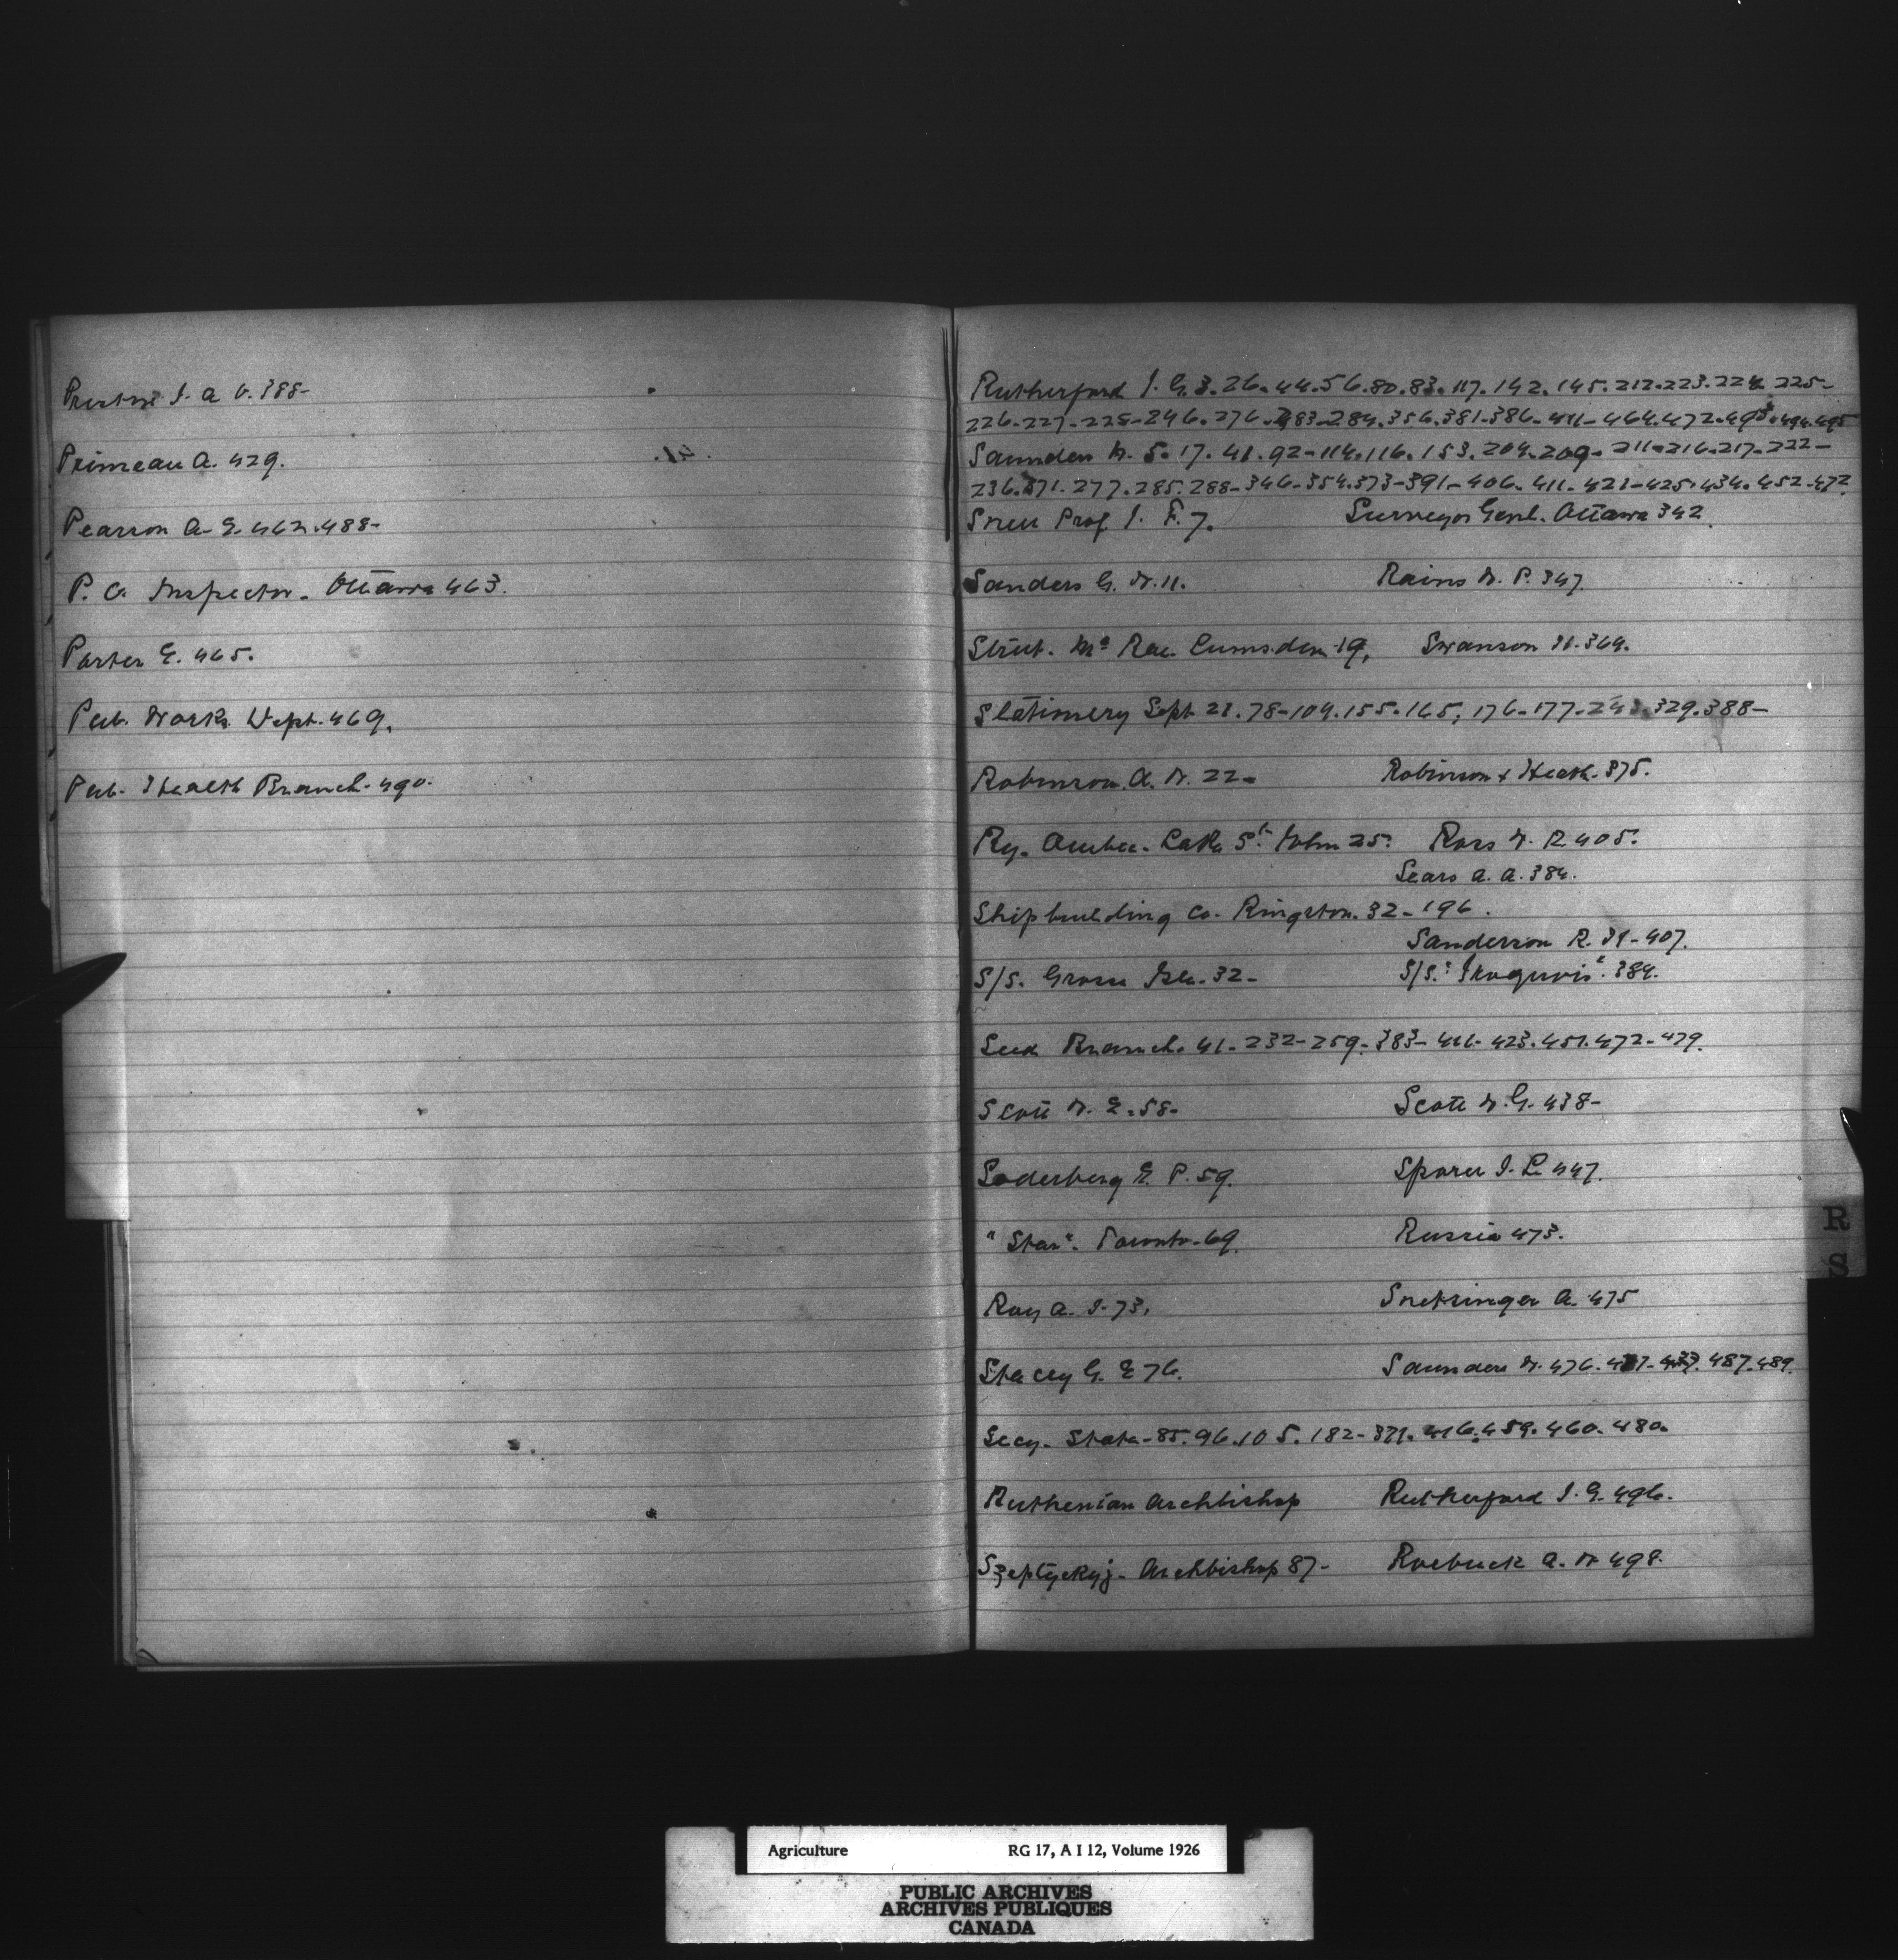 J. A. V. 388-
Primeau A. 429.
Pearson A. E. 462.488-
P. O. Inspector. Ottawa 463.
Porter E. 465.
Pub. Works Dept. 469.
Pub. Health Branch. 490.
Rutherford J. G. 3. 26. 44. 56. 80. 83. 117. 142. 145. 212. 223. 224. 225-
226-227-228-246. 276. 283-284. 356. 381. 386. 411-464. 472. 493. 494. 495
Saunders W. 5. 17. 41. 92-114. 116. 153. 204. 209. 211. 216. 217. 222-
236. 271. 277. 285. 288-346-354. 373-391-406. 411. 421-425. 434. 452. 472.
Snell Prof J. F. 7. Surveyor Genl. Ottawa 342.
Sanders G. W. 11. Rains W. P. 347.
Strut. McRae Lumsden 19. Swanson H. 364.
Stationery Dept 21. 78-104. 155. 165. 176-177. 329. 388-
Robinson. A. W. 22- Robinson & Heath. 375.
Ry. Quebec. Lake St. John 25. Ross W. R. 405.
Sears A. A. 384.
Shipbuilding Co. Kingston. 32-196.
Sanderson R. 407.
S/S. Grosse Isle. 32- S/S. 384.
Seed Branch. 41-232-259-383-416-423. 451. 472-479.
Scott W. E. 58- Scott W. G. 438-
Soderberg E. P. 59. Sporer J. L. 447.
"Star". Toronto. 69. Russia 473.
Roy A. J. 73. Snetsinger A. 475
Stacey G. E 76. Saunders W. 476. 487. 489.
Secy. State-85. 96. 105. 182-371. 416. 459. 460. 480.
Ruthenian Archbishop Rutherford J. G. 496.
Szeptyckyj. Archbishop 87- Roebuck A. W 498.
R
S
Agriculture RG 17, A I 12, Volume 1926
PUBLIC ARCHIVES
ARCHIVES PUBLIQUES
CANADA